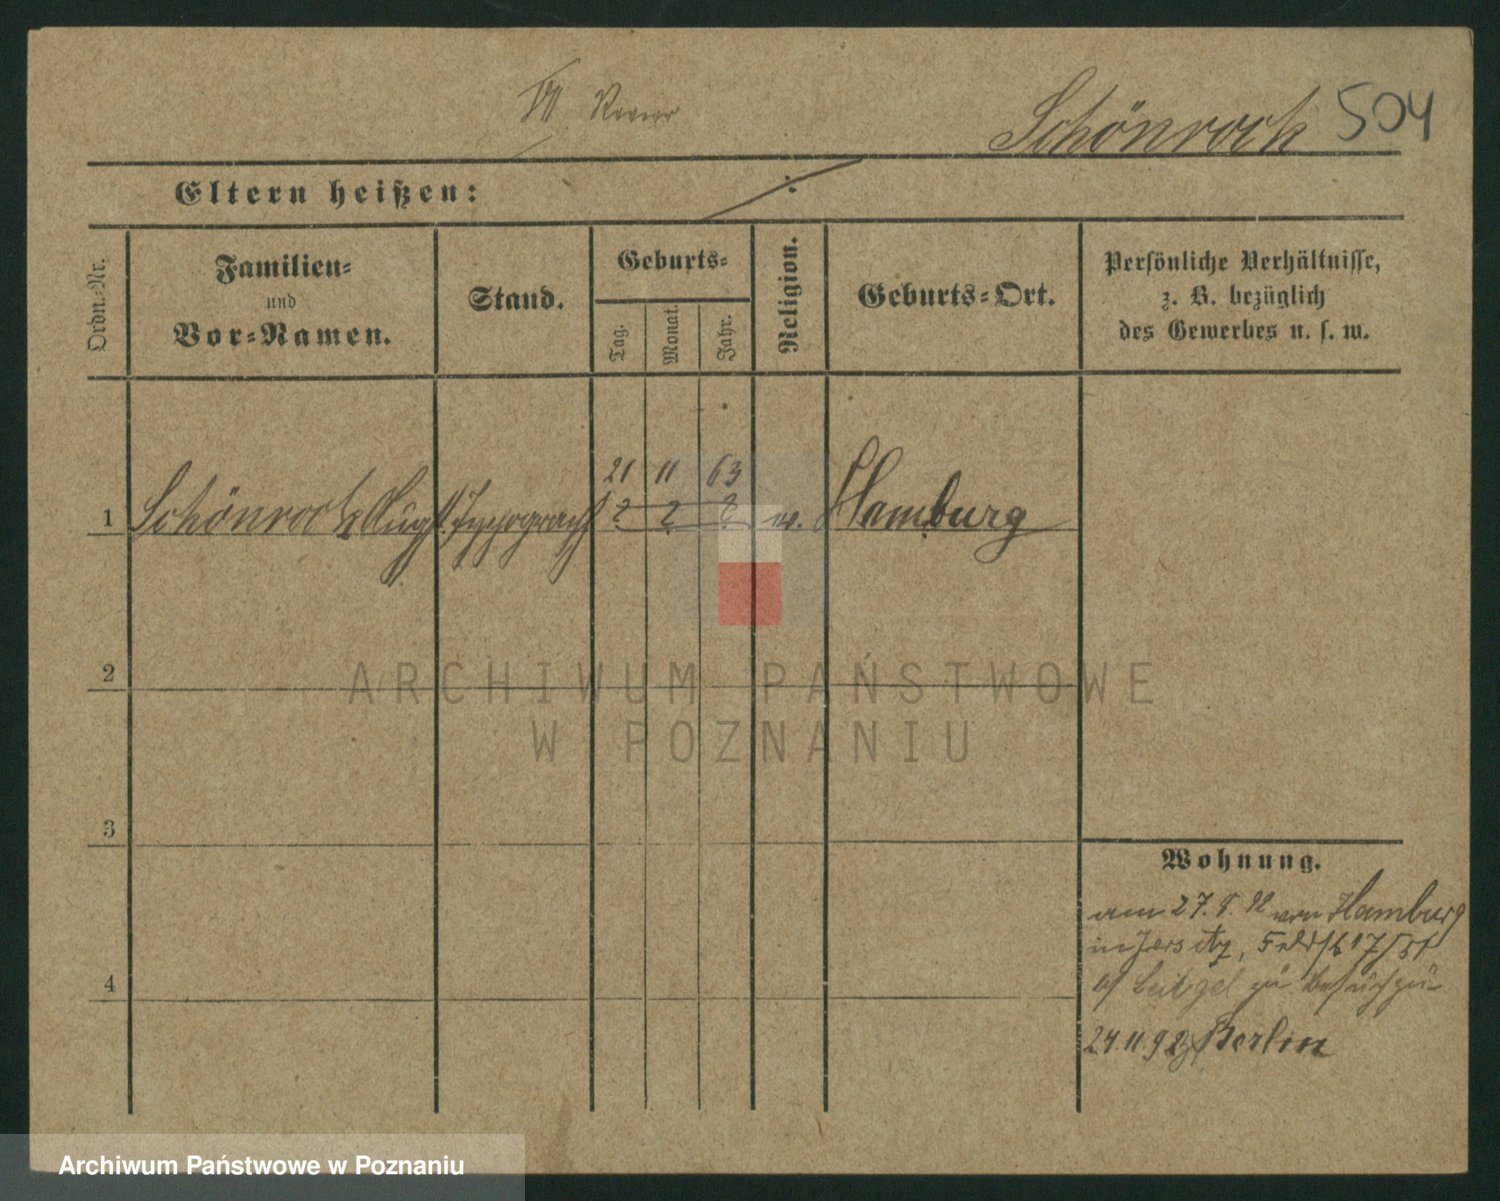 VI Revier
Schönrock 504
Eltern heißen: :
Ordn.-Nr.
Familien-
und
Vor-Namen.
Stand.
Geburts-
Tag.
Monat.
Jahr.
Religion.
Geburts-Ort.
Persönliche Verhältnisse,
z. B. bezüglich
des Gewerbes u. s. w.
21 11 63
1 Schönrock Aug. Typograph ? ? ? Hamburg
2
3
4
Wohnung.
am 27. 8. 92 von Hamburg
in Jersitz, 17
24.11.92 Berlin
ARCHIWUM PAŃSTWOWE
W POZNANIU
Archiwum Państwowe w Poznaniu